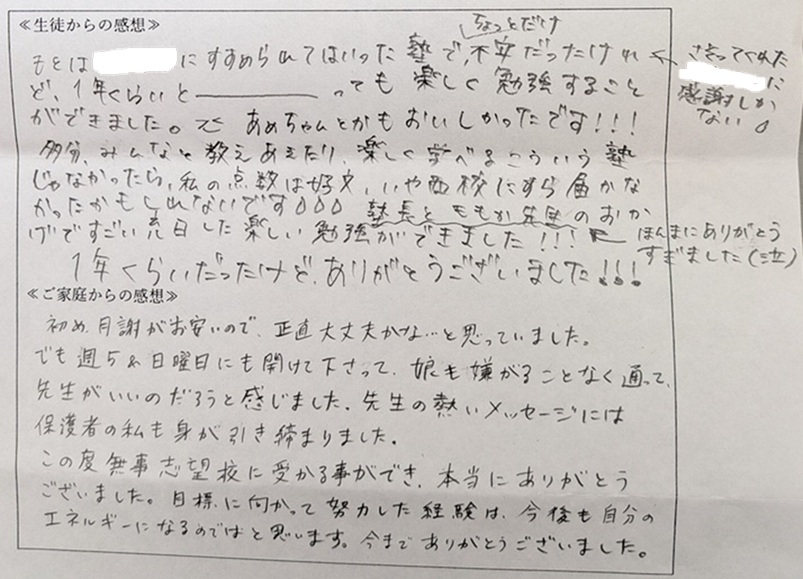 ≪生徒からの感想≫
ちょっとだけ
もとは にすすめられてはいった 塾で、不安だったけれ
ど、1年くらいと―――っても 楽しく 勉強すること
ができました。 あめちゃんとかもおいしかったです!!!
多分、みんなと教えあえたり、楽しく学べるこういう 塾
じゃなかったら、私の点数は好文、いや西校にすら届かな
かったかもしれないです 塾長とももか先生のおか
げですごい充日した楽しい勉強ができました!!!
1年くらいだったけど、ありがとうございました!!!
さそってくれた
に
感謝しか
ない
ほんまにありがとう
すぎました(泣)
≪ご家庭からの感想≫
初め、月謝がお安いので、正直大丈夫かな…と思っていました。
でも週5&日曜日にも開けて下さって、娘も嫌がることなく通って、
先生がいいのだろうと感じました。先生の熱いメッセージには
保護者の私も身が引き締まりました。
この度無事志望校に受かる事ができ、本当にありがとう
ございました。目標に向かって努力した経験は、今後も自分の
エネルギーになるのではと思います。今までありがとうございました。